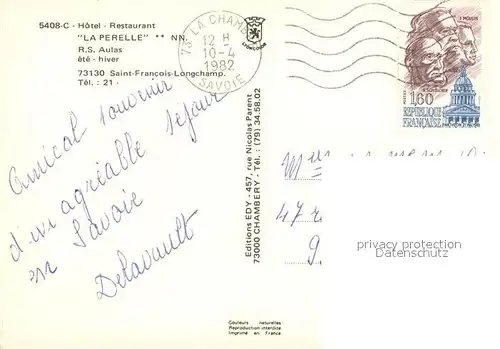 5408-C - Hôtel - Restaurant
"LA PERELLE" ** NN.
R.S. Aulas
été - hiver
73130 Saint-François-Longchamp.
Tél. : 21 -
73 LA CHAMB
12 H
10-4
1982
SAVOIE
J. MOULIN
1,60
REPUBLIQUE
FRANÇAISE
Amical souvenir
d'un agréable séjour
en Savoie
Delavault
Editions EDY - 457, rue Nicolas Parent
73000 CHAMBERY - Tél. : (79) 34.58.02
47
privacy protection
Datenschutz
Couleurs naturelles
Reproduction interdite
Imprimé en France